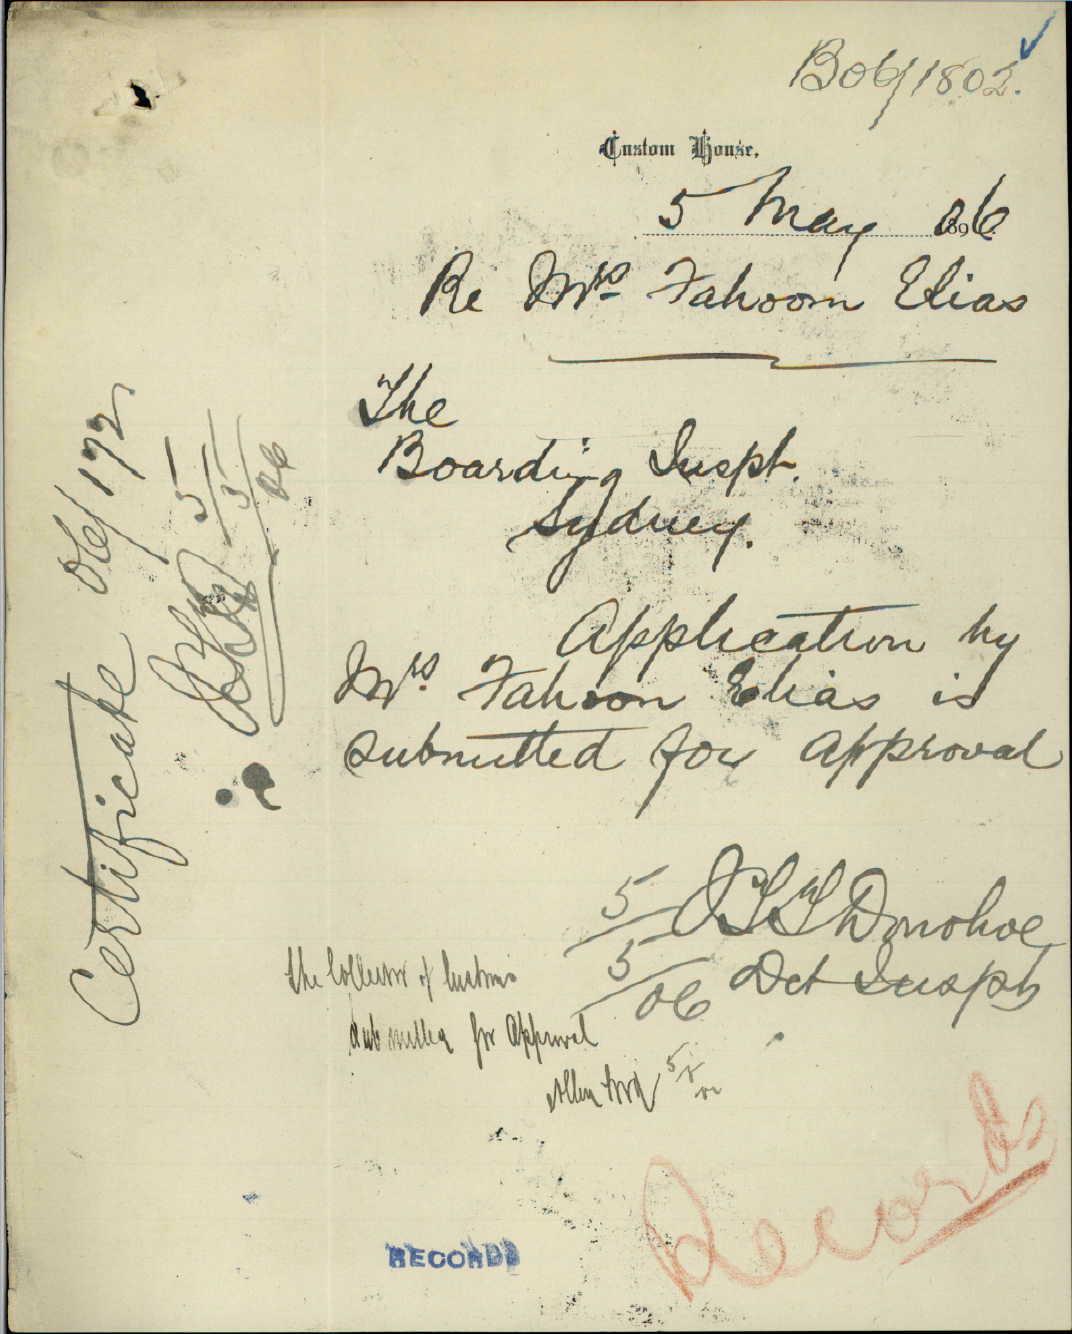 B06/1802.
Custom House,
5 May 06
Re Mrs Fahoom Elias
The
Boarding Inspt.
Sydney.
Application by
Mrs. Fahoon Elias is
submitted for approval
5/5/06 Donohoe
Det Inspt
The Collector of Customs
Submitted for Approval
5/5/06
Certificate 06/172
5/5/06
Records
RECORDS